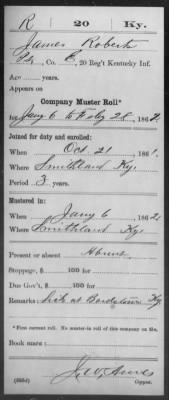 R | 20 | Ky.
James Roberts
Pvt., Co. E, 20 Reg't Kentucky Inf.
Age years.
Appears on
Company Muster Roll*
for Jany 6 to Feby 28, 1862.
Joined for duty and enrolled:
When Oct. 21, 1861.
Where Smithland Ky.
Period 3 years.
Mustered in:
When Jany 6, 1862
Where Smithland Ky.
Present or absent
Stoppage, $ 100 for
Due Gov't, $ 100 for
Remarks: Sick at Bardstown Ky
*First current roll. No muster-in roll of this company on file.
Book mark:
(358d)
Copyist.